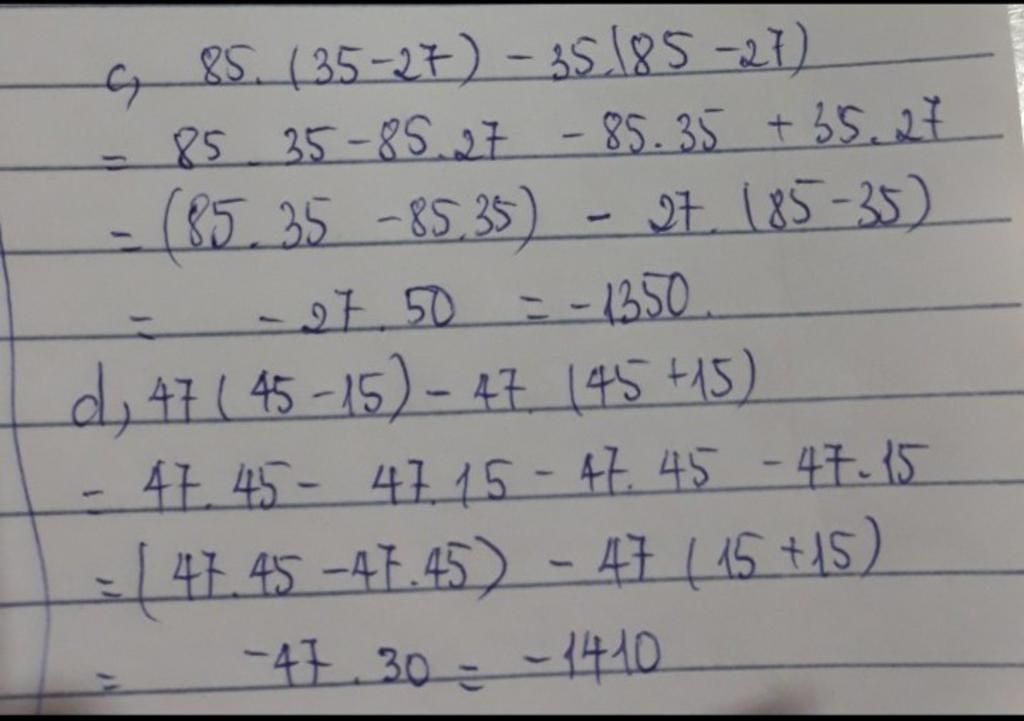 c, 85. (35-27) - 35.(85 -27)
= 85 . 35 - 85.27 - 85.35 + 35.27
= (85. 35 - 85.35) - 27. (85-35)
= - 27. 50 = -1350.
d, 47( 45 -15) - 47. (45 +15)
= 47.45 - 47.15 - 47.45 - 47.15
= ( 47.45 - 47.45) - 47 ( 15 +15)
= -47 . 30 = -1410